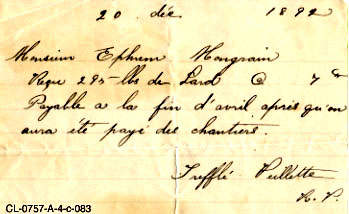 20 déc 1892
Monsieur Ephrem Mongrain
Reçu 295 lbs de Lard @ 7 c
Payable a la fin d'avril après qu'on
aura été payé des chantiers.
Trefflé
CL-0757-A-4-c-083